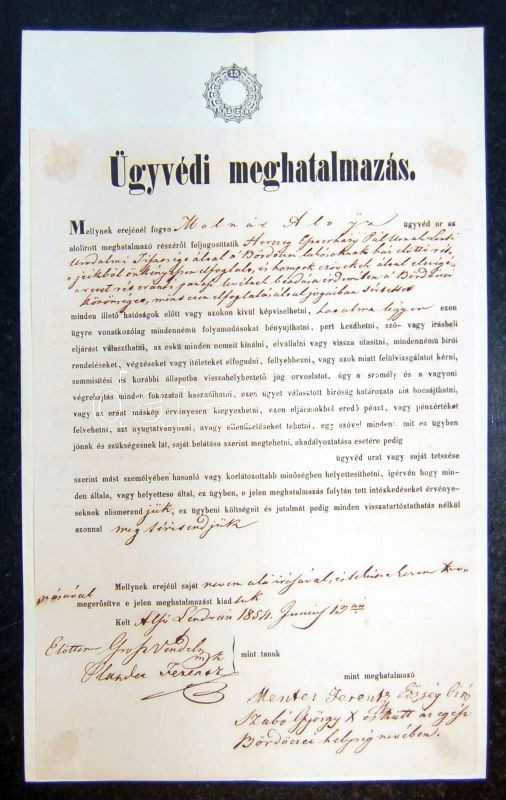 15
Ügyvédi meghatalmazás.
Mellynek erejénél fogva Molnár Aloys ügyvéd ur az
alolirott meghatalmazó részéről feljogosittatik Herczeg Eszterházy Pál Urnak Lenti
Uradalmi által a Bördöczei lakosoknak ház előtti
önkényesen elfoglalt, és által
Bördöczei
községet, mint ezen elfoglalás által jogaiban
minden illető hatóságok előtt vagy azokon kivül képviselhetni, hatalma légyen ezen
ügyre vonatkozólag mindennemü folyamodásokat bényujthatni, pert kezdhetni, szó- vagy irásbeli
eljárást választhatni, az eskü nemeit kinálni, elvállalni vagy vissza utasitni, mindennemü birói
rendeléseket, végzéseket vagy itéleteket elfogadni, fellyebbezni, vagy azok miatt felülvizsgálatot kérni,
semmisitési és korábbi állapotba visszahelyheztető jog orvoslatot, ugy a személy és a vagyoni
végrehajtás minden fokozatait használhatni, ezen ügyet választott biróság határozata alá bocsájthatni,
vagy az eránt másképp érvényesen kiegyezhetni, ezen eljárásokból eredő pénzt, vagy pénzértéket
felvehetni, azt nyugtatványozni, avagy ellenőrzéseket tehetni, egy szóval mindent, mit ez ügyben
jónak és szükségesnek lát, saját belátása szerint megtehetni, akadályoztatása esetére pedig
ügyvéd urat vagy saját tetszése
szerint mást személyében hasonló vagy korlátozottabb minőségben helyettesithetni, igérvén hogy min-
den általa, vagy helyettese által, ez ügyben, e jelen meghatalmazás folytán tett intézkedéseket érvénye-
seknek elismerendjük, ez ügybeni költségeit és jutalmát pedig minden visszatartóztathatás nélkül
azonnal megtéritendjük
Mellynek erejéül saját nevem alá irásával, és kereszt vo-
násával
megerősitve e jelen meghatalmazást kiadtuk
Kelt Alsó Lendván 1854. Junius 13án
Előttem Grosz Vendel mk
Ferencz
mint tanuk
mint meghatalmazó
Mentes Ferentz Község Biró
Szabó György X esküdt az egész
Bördöczei helység nevében.